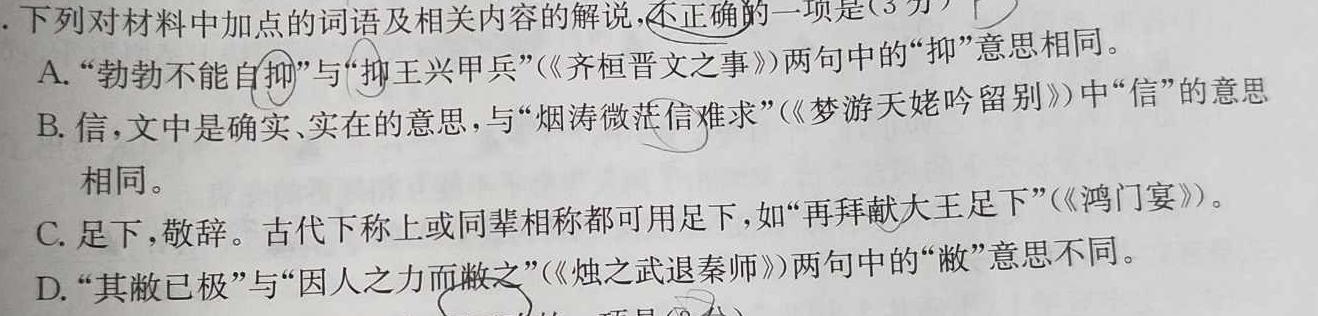 .下列对材料中加点的词语及相关内容的解说,不正确的一项是(3分)
A.“勃勃不能自抑”与“抑王兴甲兵”(《齐桓晋文之事》)两句中的“抑”意思相同。
B.信,文中是确实、实在的意思,与“烟涛微茫信难求”(《梦游天姥吟留别》)中“信”的意思
相同。
C.足下,敬辞。古代下称上或同辈相称都可用足下,如“再拜献大王足下”(《鸿门宴》)。
D.“其敝已极”与“因人之力而敝之”(《烛之武退秦师》)两句中的“敝”意思不同。